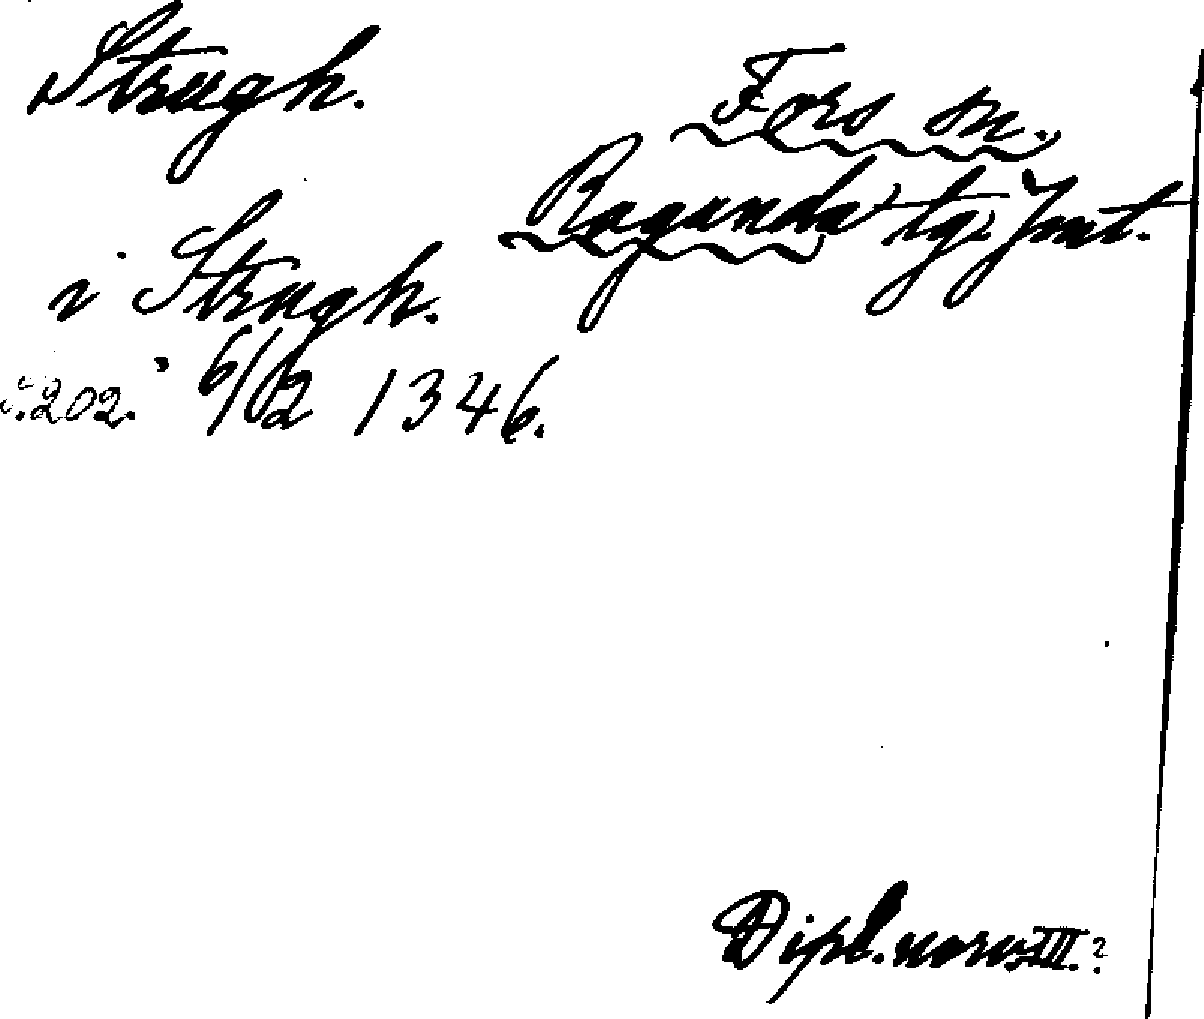 Strugh.
Fors sn.
Ragunda tg. Jmt.
i Strugh.
s. 202. 6/02 1346.
Dipl. norv. III. 2